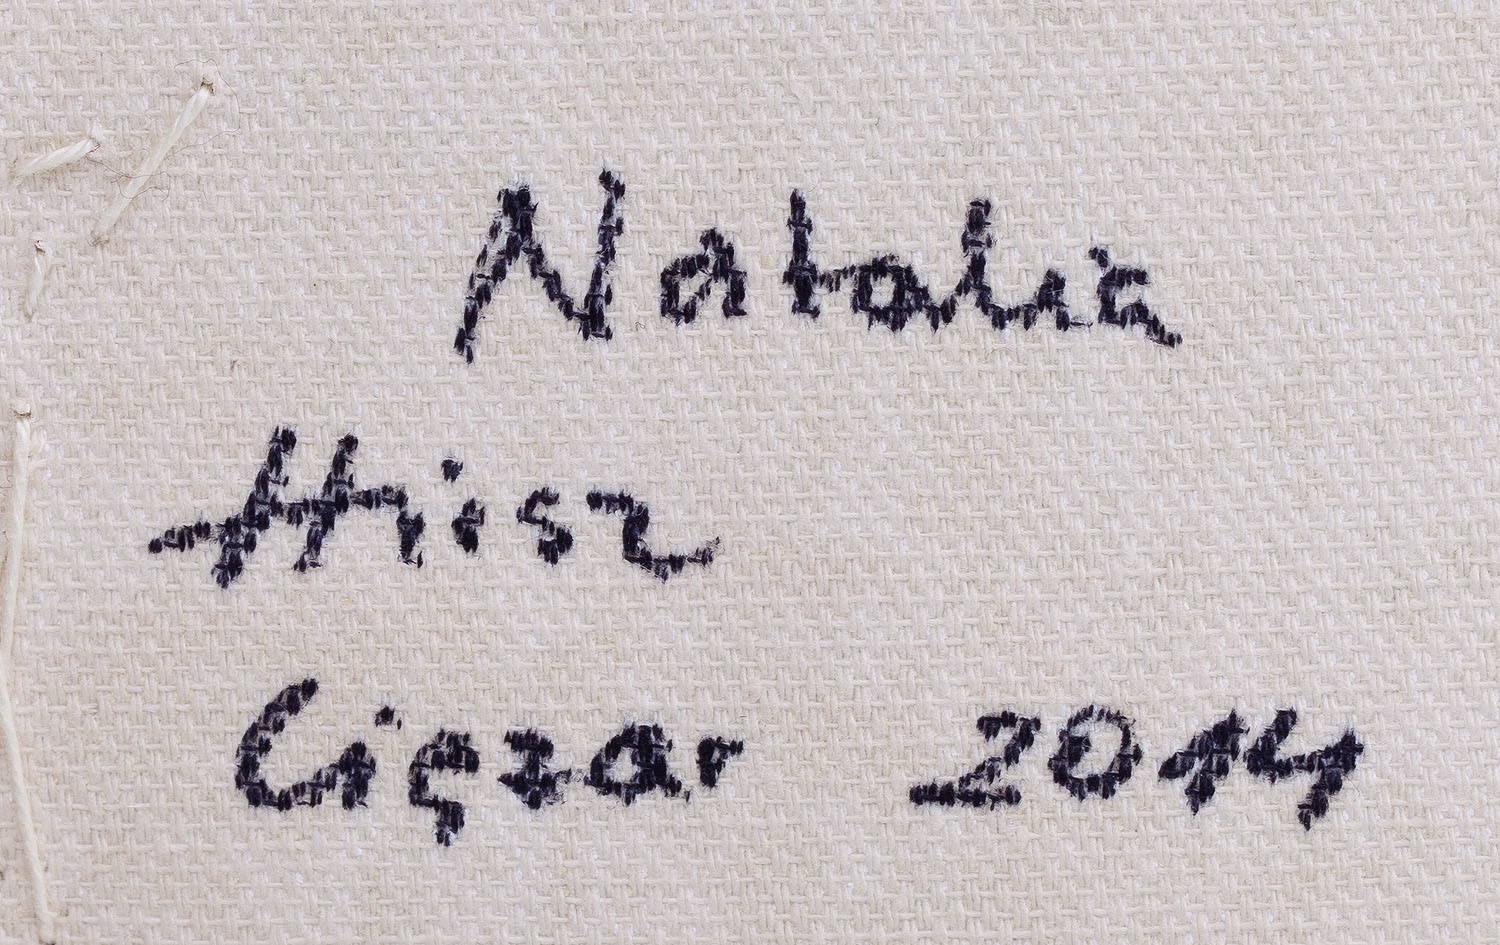 Natalia
Hisz
Ciężar 2014